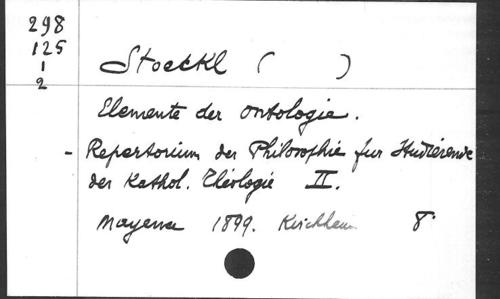 298
125
1
2
Stoeckl ( )
Elemente der Ontologie.
- Repertorium der Philosophie fur Studierende
der Kathol. Theologie II.
Mayence 1899. Kirchheim 8°